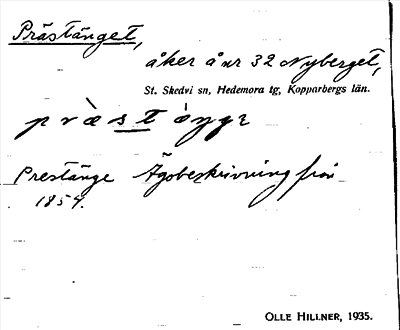 Prästänget,
åker å nr 32 Nyberget,
St. Skedvi sn, Hedemora tg, Kopparbergs län.
Prestänge Ägobeskrivning från
1854.
OLLE HILLNER, 1935.